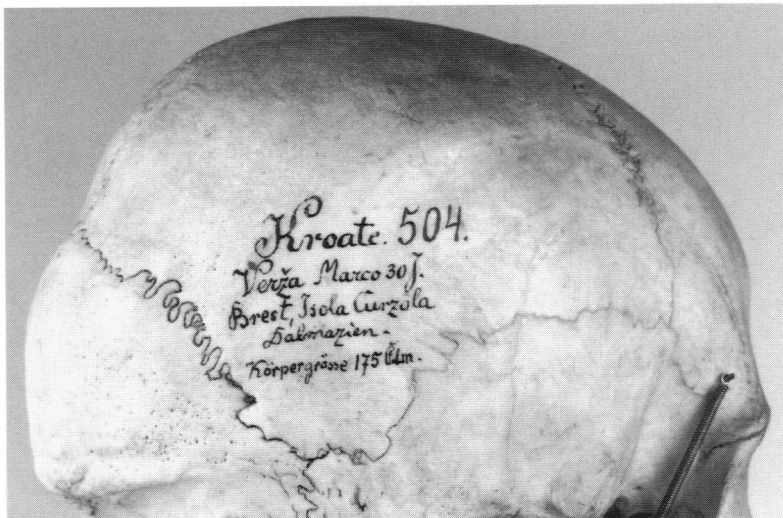 Kroate. 504.
Verža Marco 30 J.
Brest, Isola Curzola
Dalmazien.
Körpergrösse 175 Ctm.